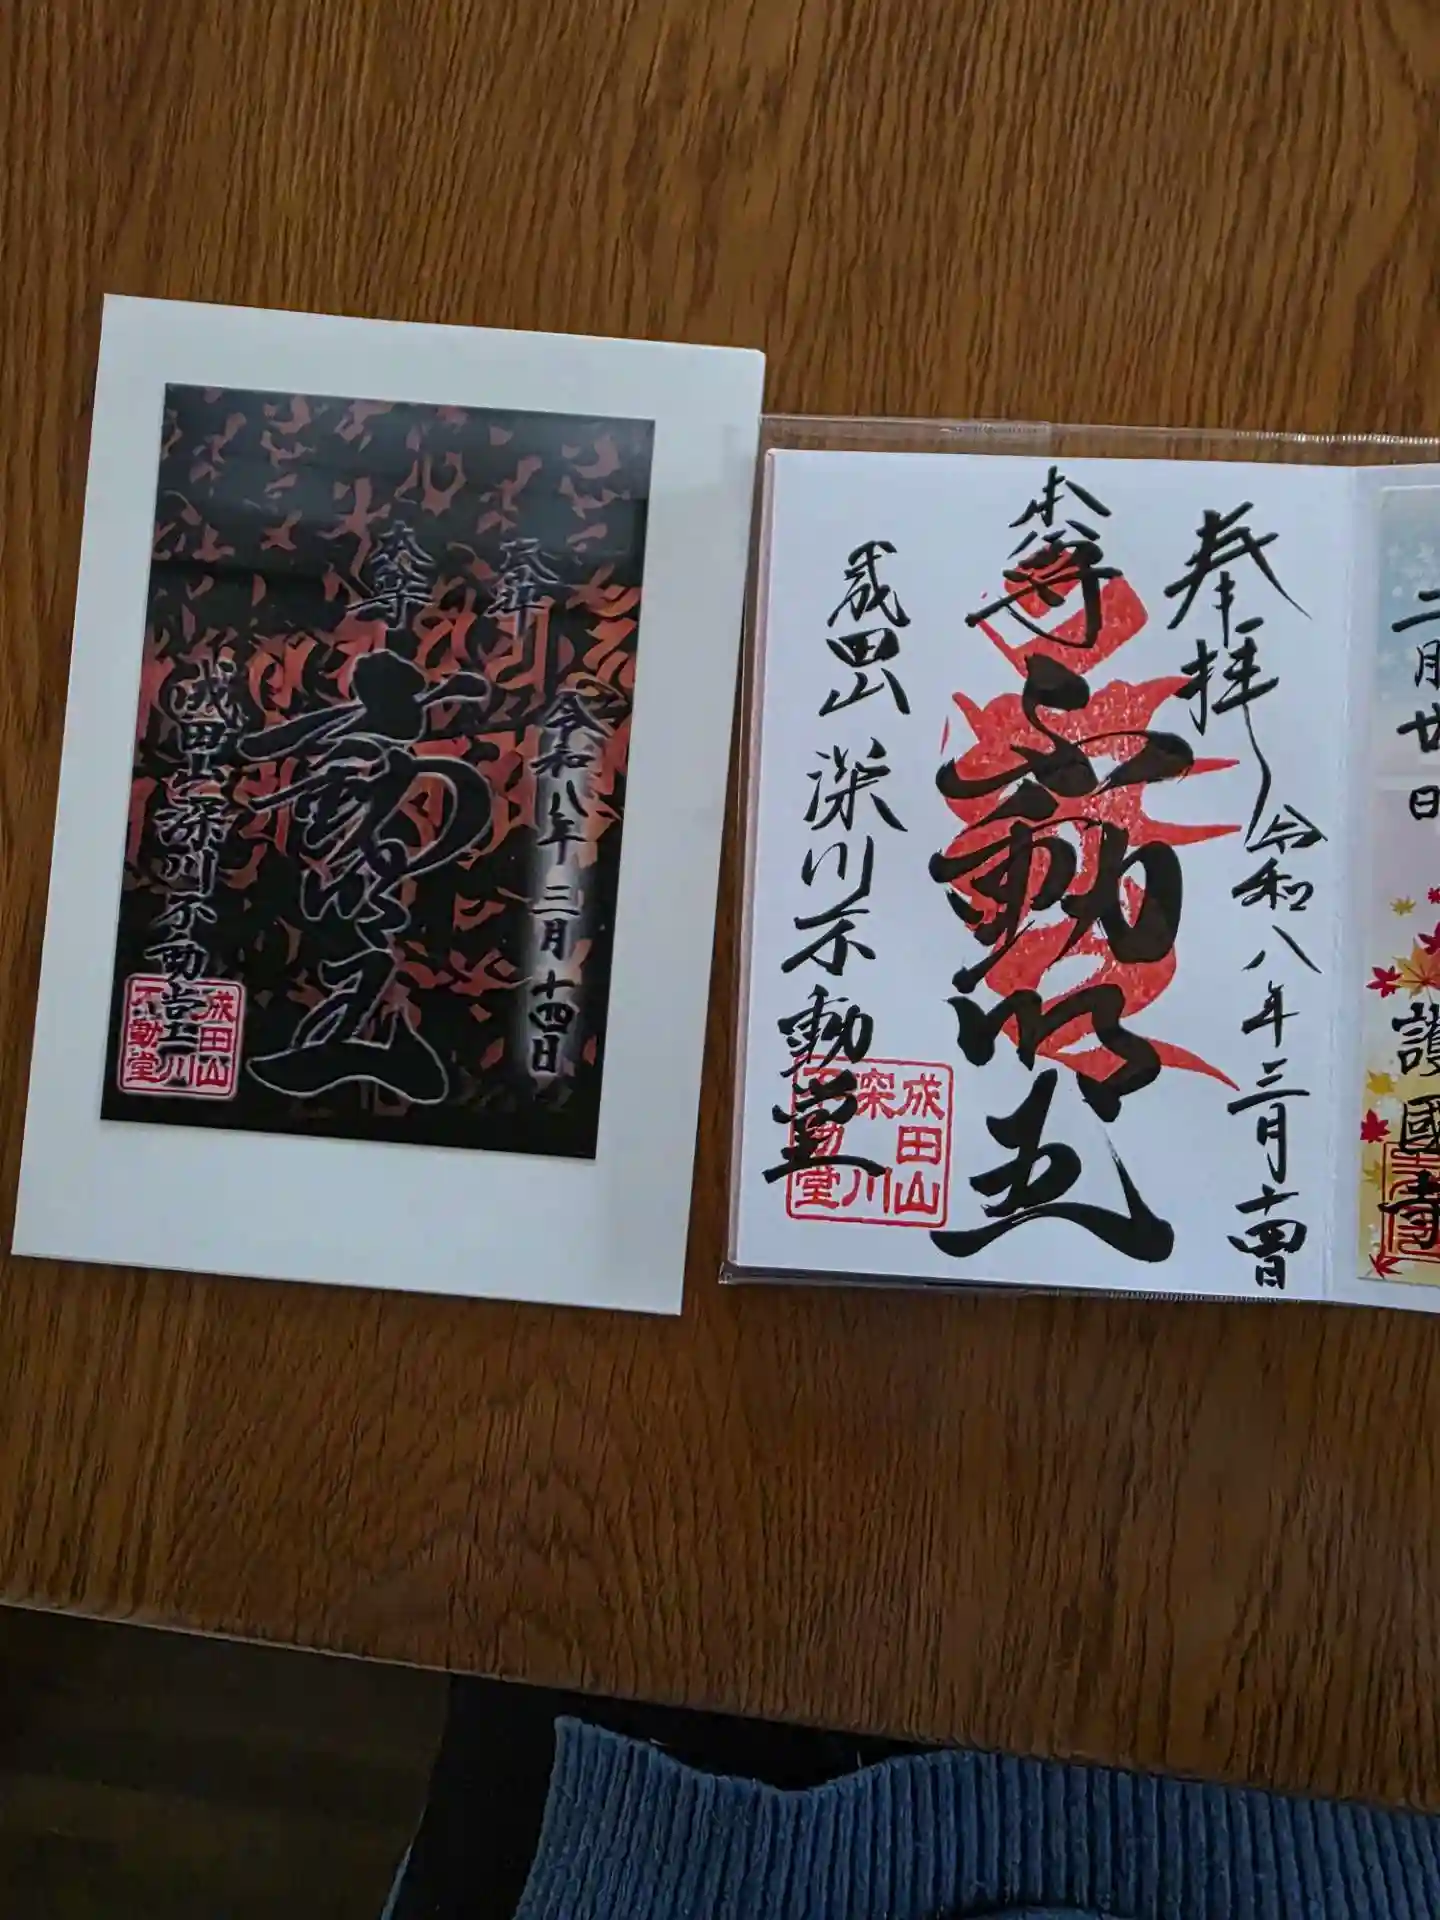 奉拝
令和八年三月十四日
本尊
不動明王
成田山深川不動堂
成田山
深川
不動堂
奉拝
令和八年三月十四日
本尊
不動明王
成田山深川不動堂
成田山
深川
不動堂
二月廿日
護國寺